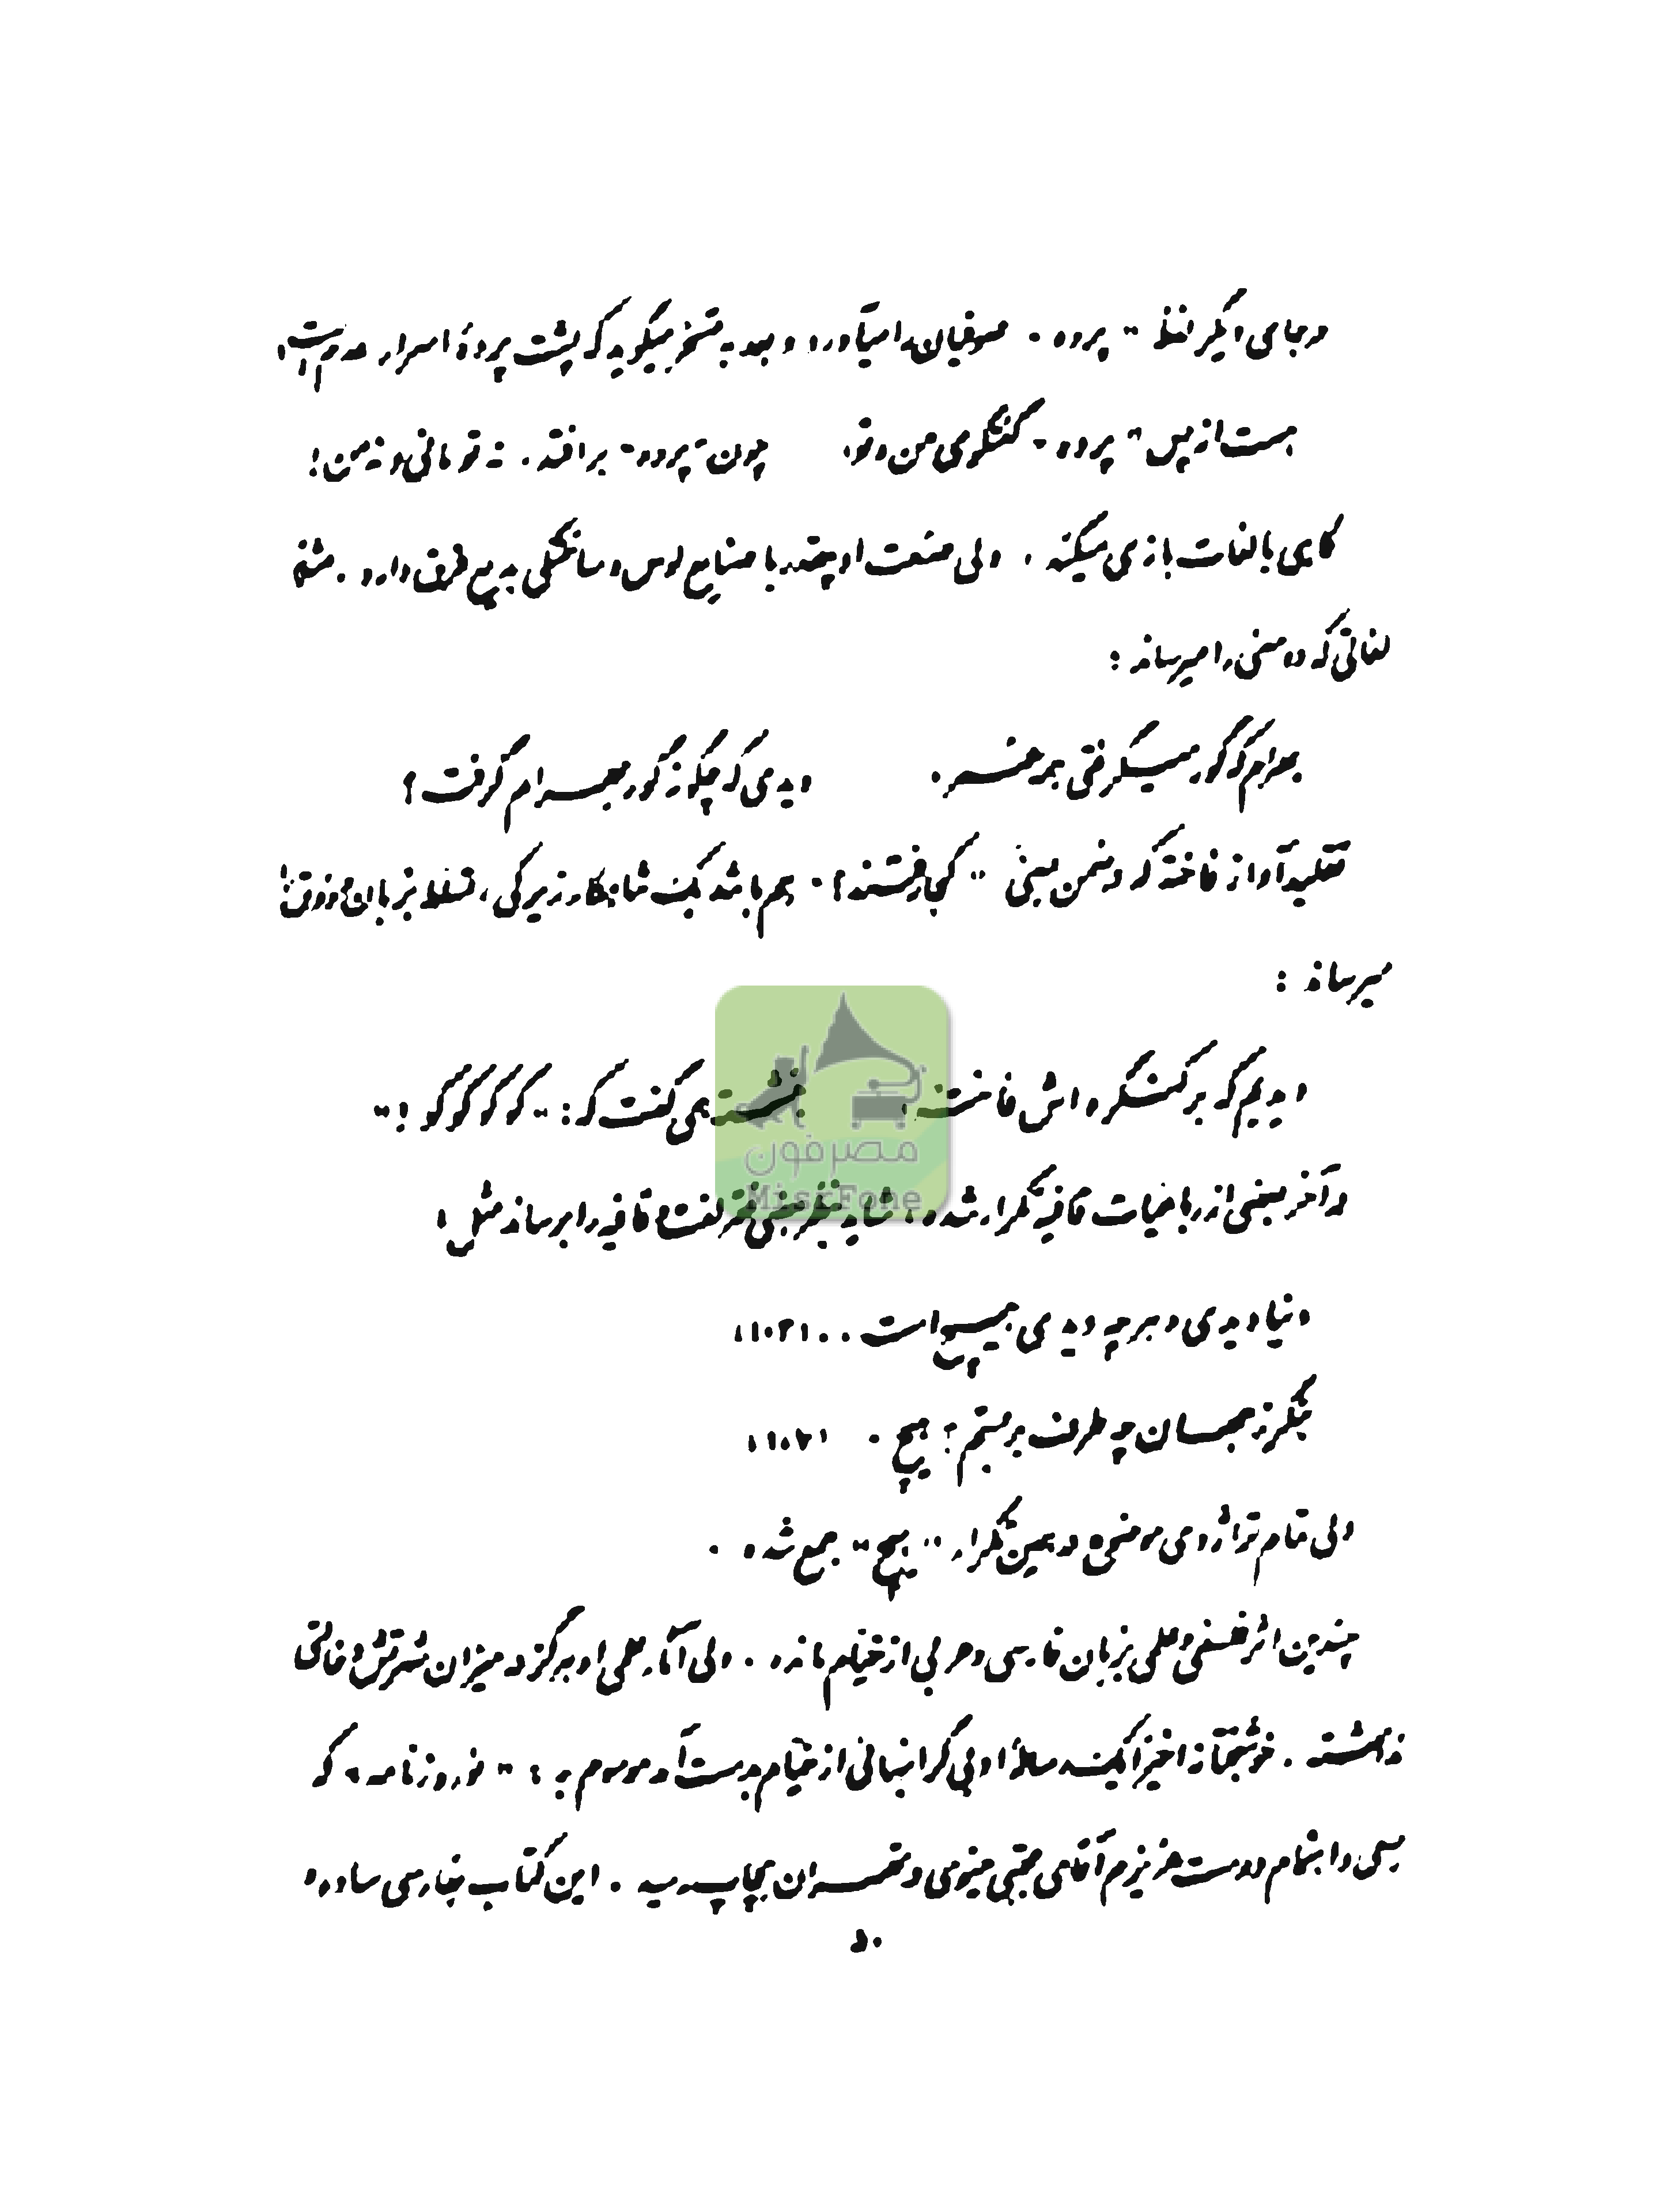 در جای دیگر لفظ "پرده" صوفیان را میآورد و بعد به تمسخر میگوید که پشت پردهٔ اسرار عدم است:
هست از پس "پرده" گفتگوی من و تو، چون "پرده" برافتد، نه تو مانی و نه من!
گاهی با لغات بازی میکند، ولی صنعت او چقدر با صنایع لوس و ساختگی بدیع فرق دارد. مثلا
لغاتی که دو معنی را میرساند:
بهرام که گور میگرفتی همه عمر، دیدی که چگونه گور بهرام گرفت؟
تقلید آواز فاخته که در ضمن بمعنی "کجا رفتند؟" هم باشد یک شاهکار زیرکی، تسلط بزبان و ذوق را
میرساند:
دیدیم که بر کنگره‌اش فاخته‌ای بنشسته همی گفت که: "کوکوکوکو!"
در آخر بعضی از رباعیات قافیه تکرار شده، شاید بنظر بعضی فقر لغت و قافیه را برساند مثل:
دنیا دیدی و هرچه دیدی هیچ است..
بنگر ز جهان چه طرف بربستم؟ هیچ.
ولی تمام تراژدی موضوع در همین تکرار "هیچ" جمع شده.
چندین اثر فلسفی و علمی بزبان فارسی و عربی از خیام مانده. ولی آثار علمی او هرگز در میزان شهرتش دخالتی
نداشته. خوشبختانه اخیراً یک رسالهٔ ادبی گرانبهائی از خیام بدست آمد موسوم به: "نوروزنامه" که
بسعی و اهتمام دوست عزیزم آقای مجتبی مینوی در تهران بچاپ رسید. این کتاب بفارسی ساده و
۵۰
مصرفون
MisrFone